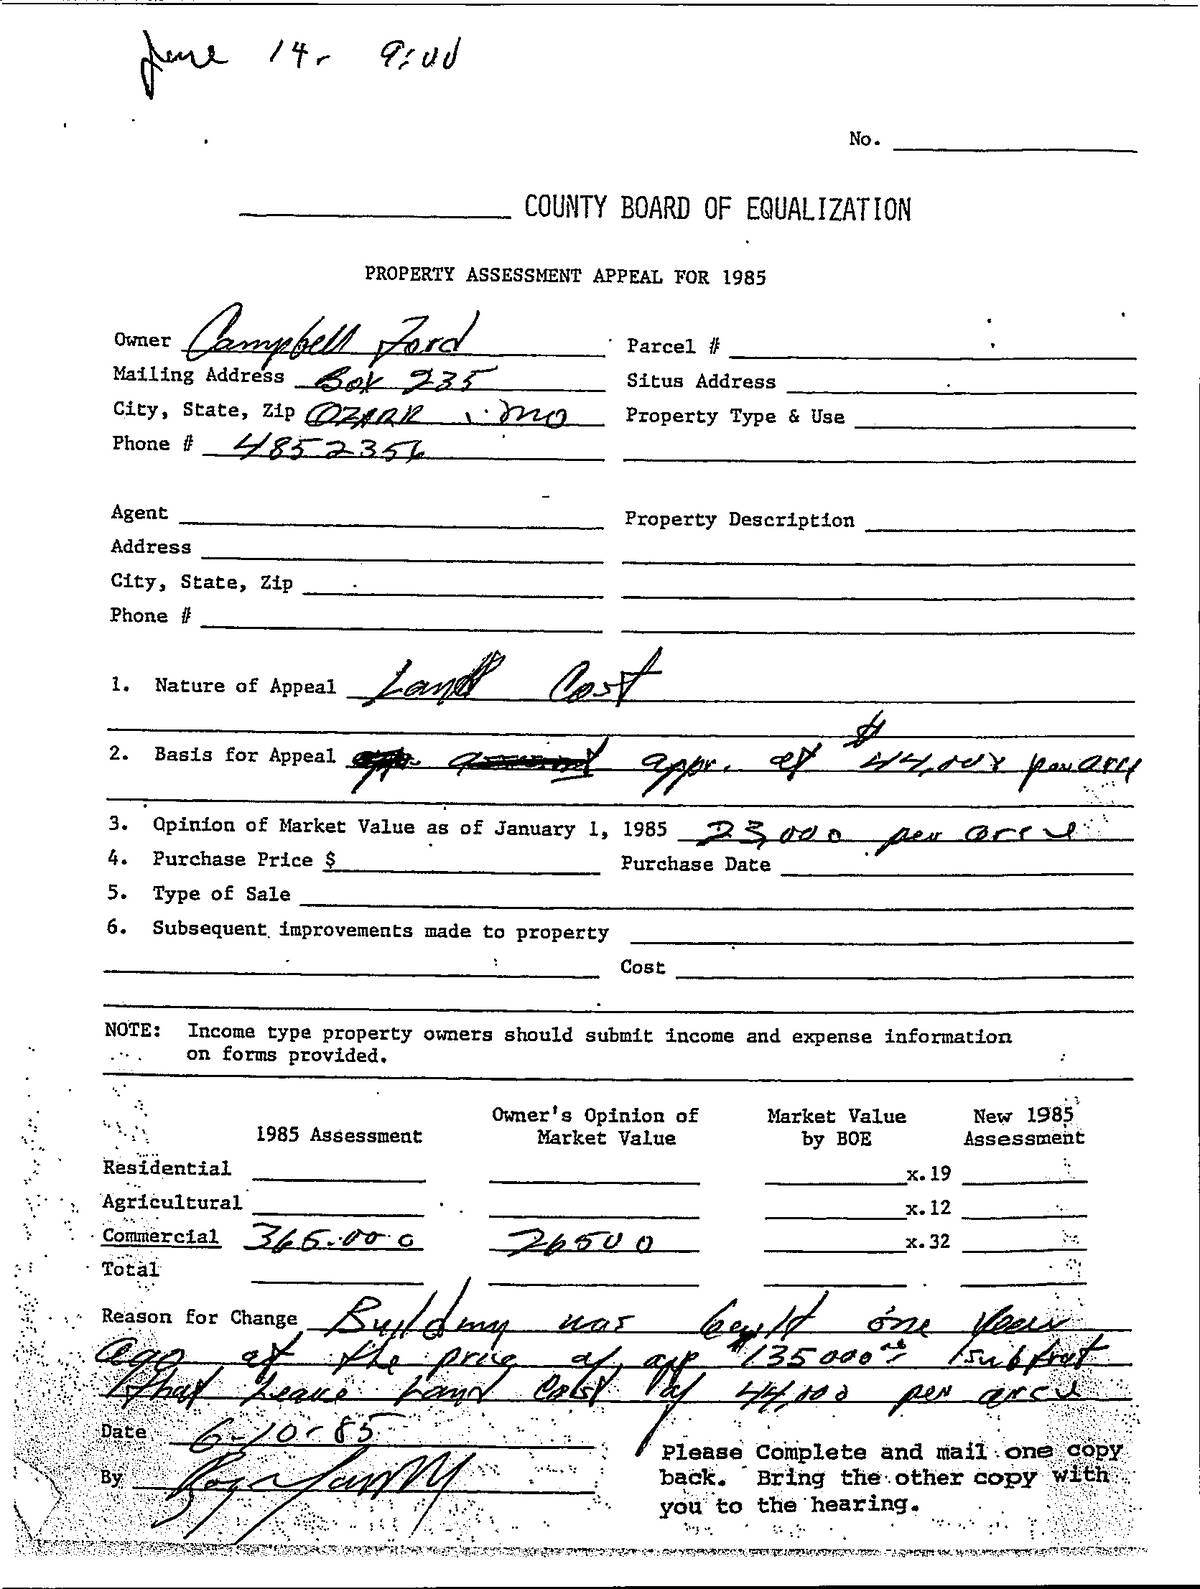 June 14- 9:00
No.
COUNTY BOARD OF EQUALIZATION
PROPERTY ASSESSMENT APPEAL FOR 1985
Owner Campbell Ford
Parcel #
Mailing Address Box 235
Situs Address
City, State, Zip OZARK, MO
Property Type & Use
Phone # 4852356
Agent
Property Description
Address
City, State, Zip
Phone #
1. Nature of Appeal Land Cost
2. Basis for Appeal appr. at $ 44,000 per acre
3. Opinion of Market Value as of January 1, 1985 23,000 per acre
4. Purchase Price $
Purchase Date
5. Type of Sale
6. Subsequent improvements made to property
Cost
NOTE: Income type property owners should submit income and expense information
on forms provided.
1985 Assessment Owner's Opinion of Market Value Market Value by BOE New 1985 Assessment
Residential x.19
Agricultural x.12
Commercial 365.000 26500 x.32
Total
Reason for Change Building was built one year
ago at the price of app $135000 subtrat
that leave Land Cost of 44,000 per acre
Date 6-10-85
By
Please Complete and mail one copy
back. Bring the other copy with
you to the hearing.